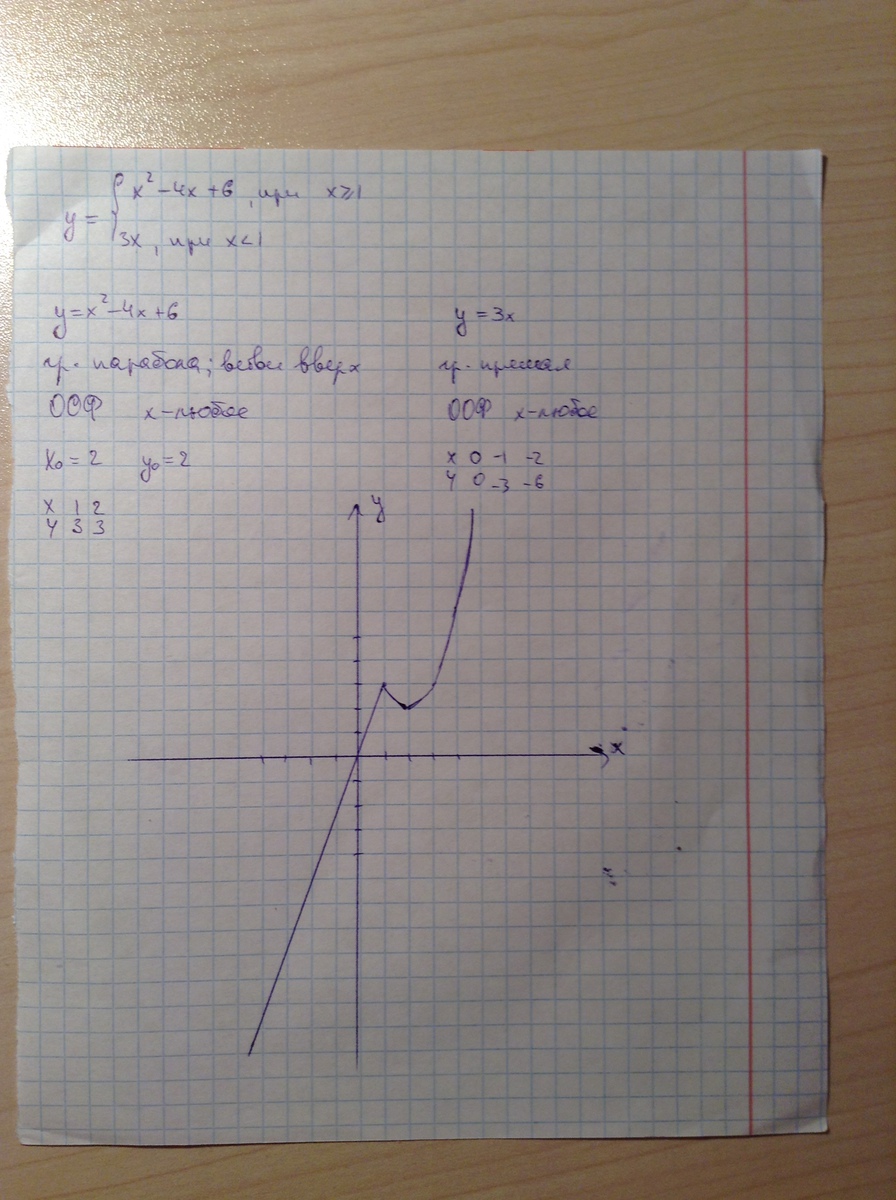 y = { x² - 4x + 6, при x ≥ 1
3x, при x < 1
y = x² - 4x + 6
гр. парабола; ветви вверх
ООФ x - любое
x₀ = 2 y₀ = 2
x 1 2
y 3 3
y = 3x
гр. прямая
ООФ x - любое
x 0 -1 -2
y 0 -3 -6
y
x